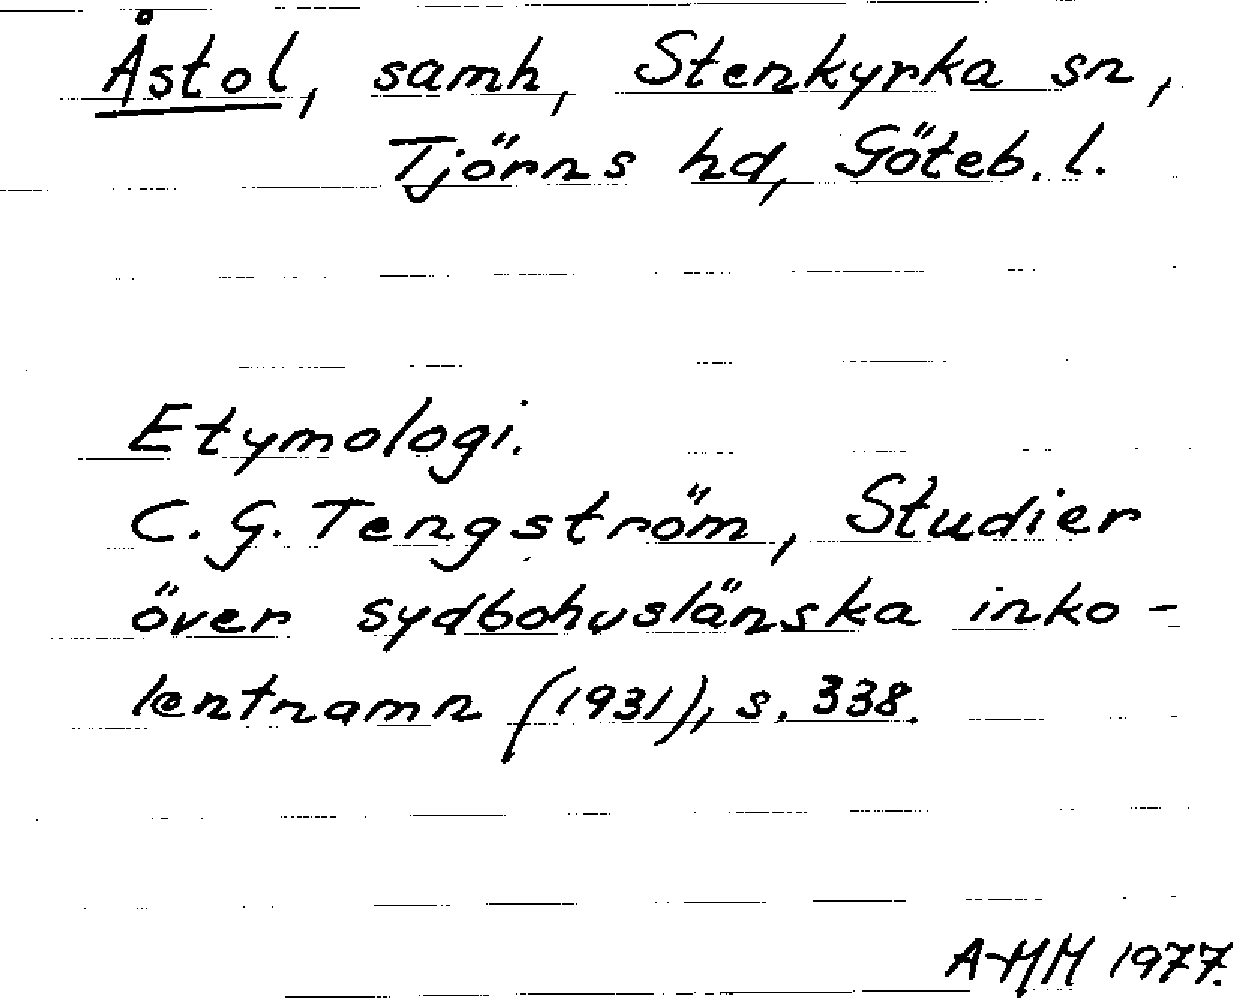 Åstol, samh, Stenkyrka sn,
Tjörns hd, Göteb. l.
Etymologi.
C. G. Tengström, Studier
över sydbohuslänska inko-
lentnamn (1931), s. 338.
A-MM 1977.